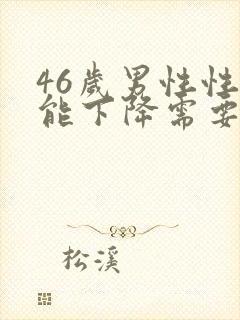 46岁男性性
能下降需要
松溪